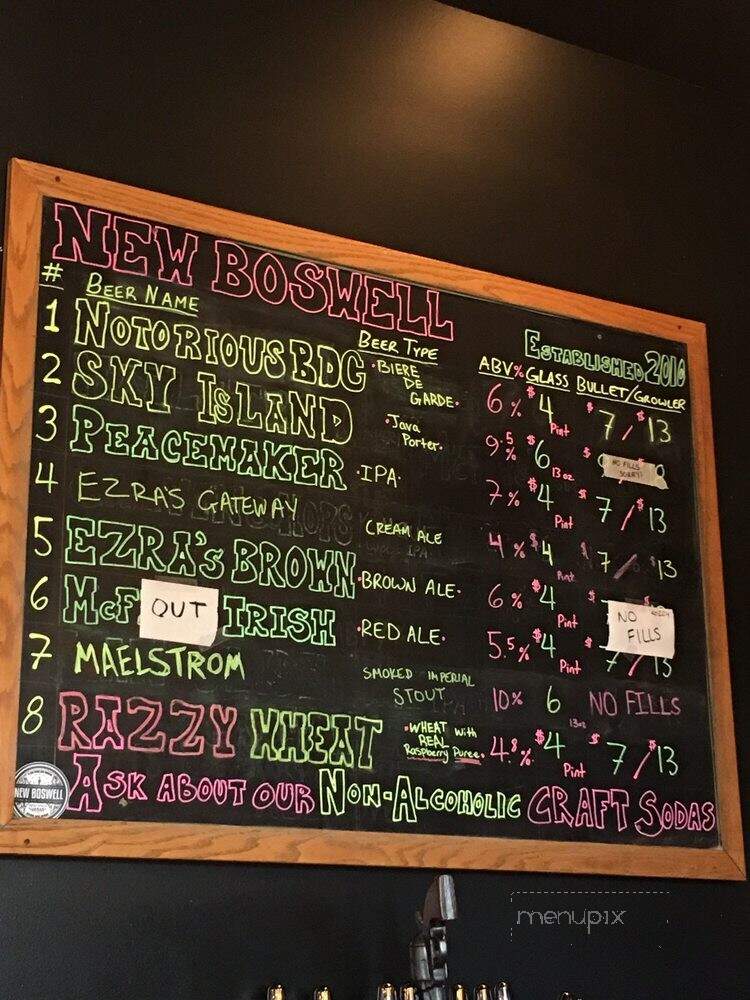 NEW BOSWELL
ESTABLISHED 2010
# BEER NAME BEER TYPE ABV% GLASS BULLET/GROWLER
1 NOTORIOUS BDG •BIERE DE GARDE• 6% $4 Pint $7/$13
2 SKY ISLAND •Java Porter• 9.5% $6 13oz NO FILLS SORRY!
3 PEACEMAKER •IPA• 7% $4 Pint $7/$13
4 EZRA'S GATEWAY CREAM ALE 4% $4 Pint $7/$13
5 EZRA'S BROWN •BROWN ALE• 6% $4 Pint NO FILLS
6 McF OUT IRISH •RED ALE• 5.5% $4 Pint 7/13
7 MAELSTROM SMOKED IMPERIAL STOUT 10% 6 13oz NO FILLS
8 RAZZY WHEAT •WHEAT With REAL Raspberry Puree• 4.8% $4 Pint $7/$13
ASK ABOUT OUR NON-ALCOHOLIC CRAFT SODAS
NEW BOSWELL
menupix